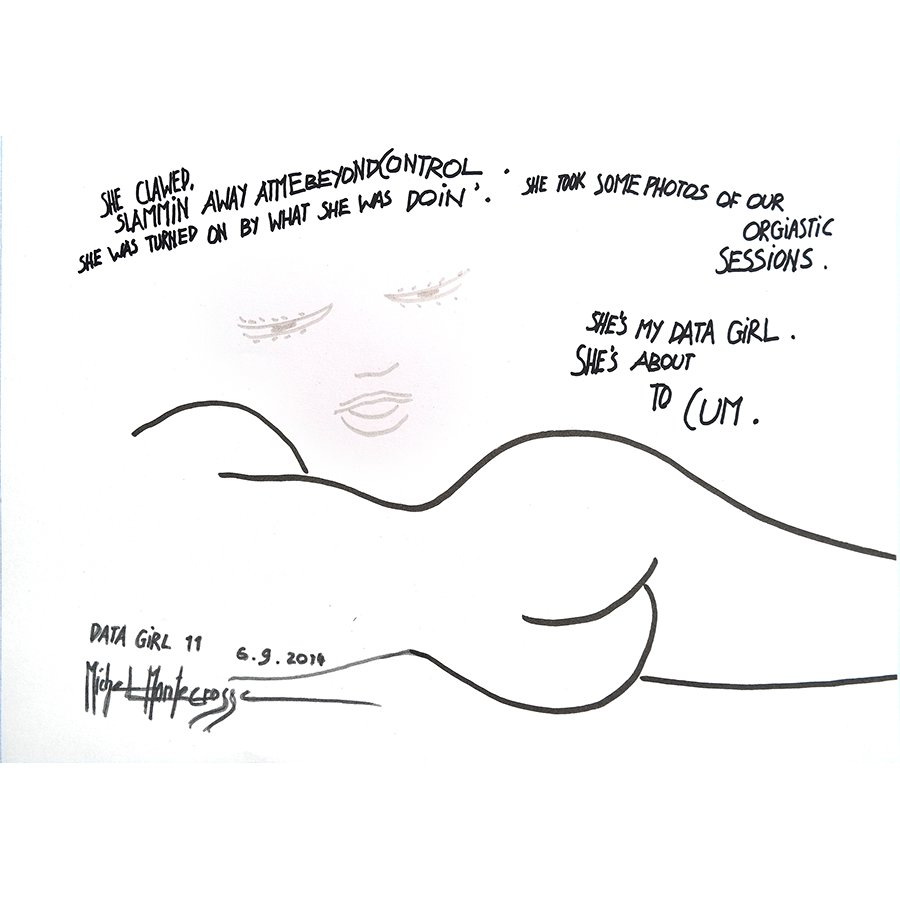 SHE CLAWED,
SLAMMIN AWAY AT ME BEYOND CONTROL.
SHE WAS TURNED ON BY WHAT SHE WAS DOIN'.
SHE TOOK SOME PHOTOS OF OUR
ORGIASTIC
SESSIONS.
SHE'S MY DATA GIRL.
SHE'S ABOUT
TO CUM.
DATA GIRL 11
6.9.2014
Michel Montecrossa